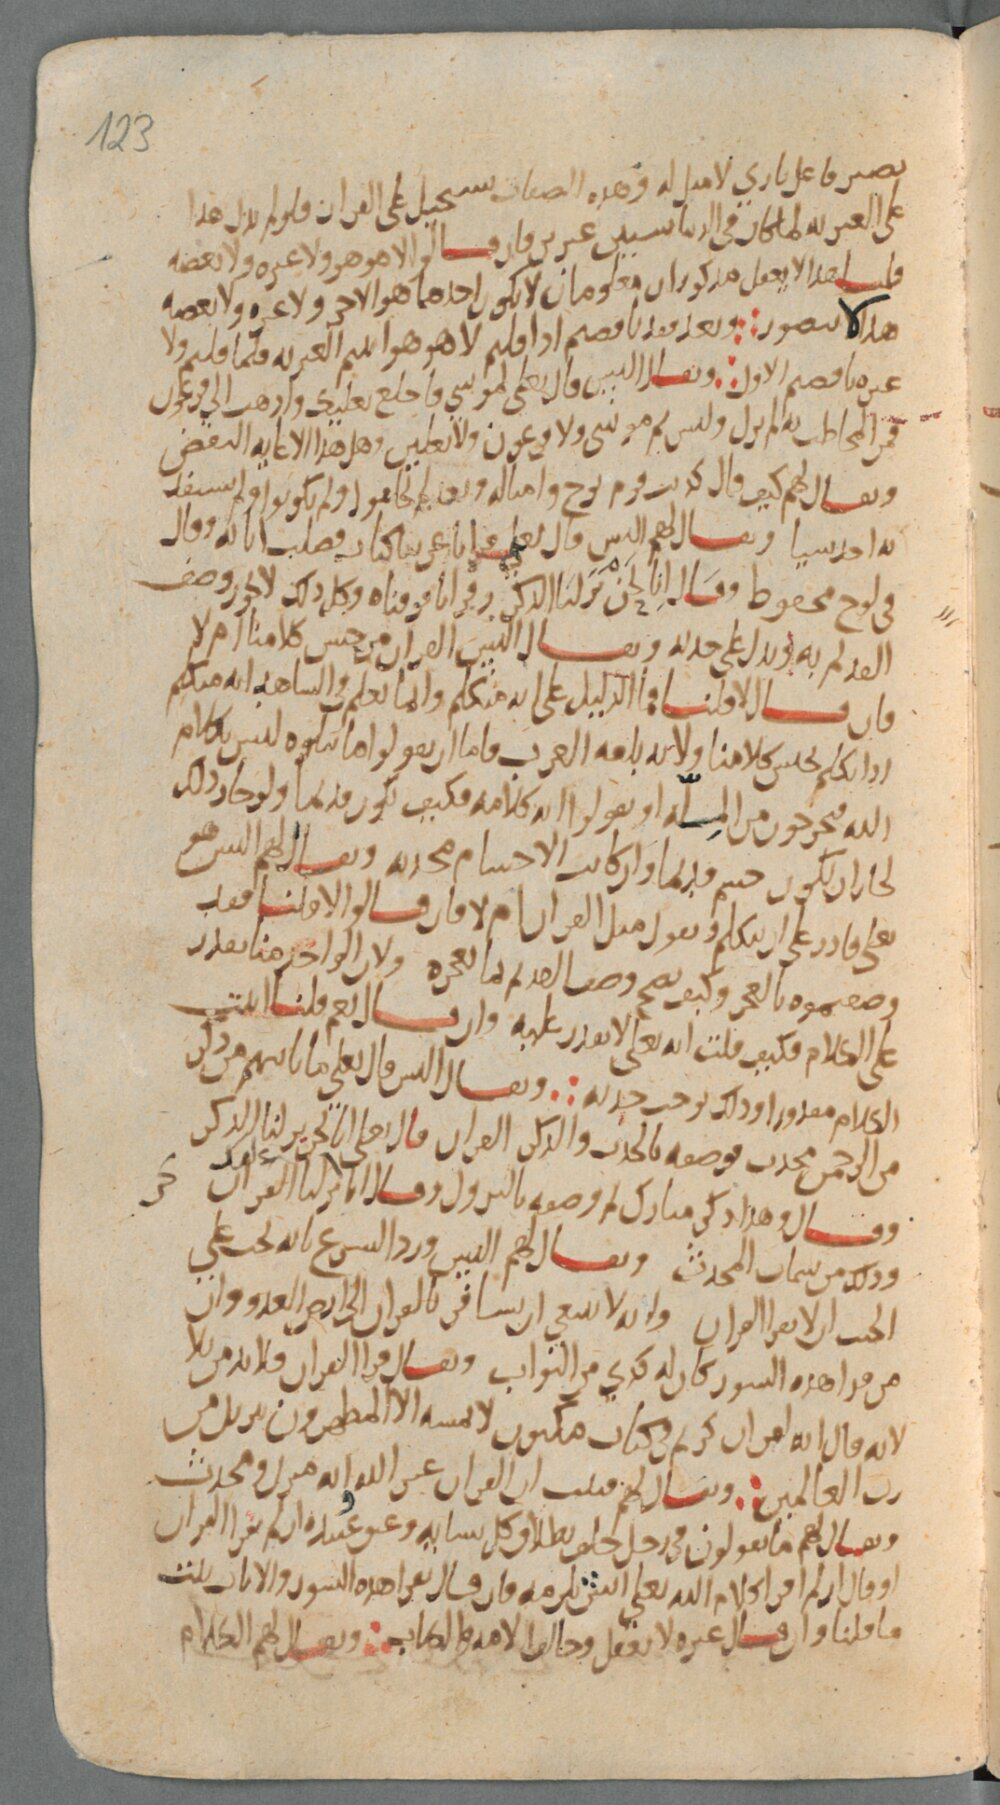 123
على الغير لله لما كان في الدنيا شيئين غيرين فإن قالوا لا هو هو ولا غيره ولا بعضه
قلنا هذا لا يعقل مذكوران معلومان لا يكون احدهما هو الآخر ولا غيره ولا بعضه
هذا لا يتصور وبعد فقد ناقضتم اذا قلتم لا هو هو اثبتم الغيرية فلما قلتم ولا
غيره ناقضتم الاول ويقال اليس قال تعالى لموسى فاخلع نعليك واذهب الى فرعون
فمن المخاطب به لم يزل وليس ثم موسى ولا فرعون ولا نعلين وهل هذا الا غاية النقض
ويقال لهم كيف قال كذبت قوم نوح وامثاله وبعد لم يخلقوا ولم يكونوا ولم
ويقال لهم اليس قال تعالى قرانا عربيا كتاب فصلت اياته وقال
في لوح محفوظ وقال انا نحن نزلنا الذكر وقرانا فرقناه وكل ذلك لا يجوز وصف
القديم به ويدل على حدثه ويقال اليس القران من جنس كلامنا ام لا
فإن قال لا قلنا فما الدليل على انه متكلم وانما نعلم في الشاهد انه متكلم
اذا تكلم بجنس كلامنا ولانه بلغة العرب فاما ان يقولوا ما نتلوه ليس بكلام
الله فيخرجون من الملة او يقولوا انه كلامه فكيف يكون قديما ولو جاز ذلك
لجاز ان يكون جسم قديما وان كانت الاجسام محدثة ويقال لهم اليس هو
تعالى قادر على ان يتكلم ويقول مثل القران ام لا فان قالوا لا قلنا فقد
وصفتموه بالعجز وكيف يصح وصف القديم بما يعجزه ولان الواحد منا يقدر
على الكلام فكيف قلت انه تعالى لا يقدر عليه وان قال نعم قلنا اثبت
الكلام مقدورا وذلك يوجب حدثه ويقال اليس قال تعالى ما ياتيهم من ذكر
من الرحمن محدث فوصفه بالحدث والذكر القران قال تعالى انا نحن نزلنا الذكر
وقال وهذا ذكر مبارك ثم وصفه بالنزول وقال انا انزلنا القران
وذلك من سمات المحدث ويقال لهم اليس ورد الشرع بانه يجب على
الجنب ان لا يقرا القران وانه لا ينبغي ان يسافر بالقران الى ارض العدو وان
من قرا هذه السور كان له كذى من الثواب ويقال قرا القران فلا بد من بلا
لانه قال انه لقران كريم في كتاب مكنون لا يمسه الا المطهرون تنزيل من
رب العالمين ويقال لهم فثبت ان القران غير الله انه منزل ومحدث
ويقال لهم ما يقولون في رجل حلف بطلاق كل نسائه وعتق عبيده ان لم يقرا القران
او قال ان لم اقرا كلام الله تعالى ايش يلزمه فان قال يقرا هذه السور والايات بلت
ما قلنا وان قال غيره لا يعقل ويقال لهم الكلام